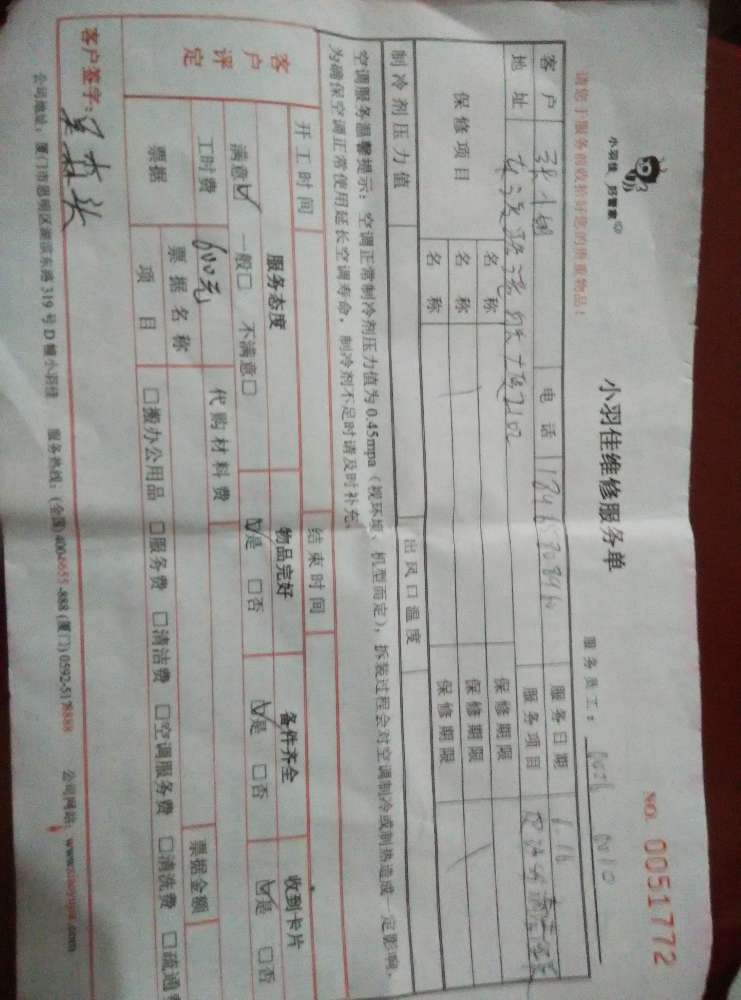 小羽佳 好管家
小羽佳维修服务单
NO. 0051772
请您于服务前收拾好您的贵重物品!
服务员工:
客户 电话 服务日期 1.16
地址 服务项目
保修项目 名称 保修期限
名称 保修期限
名称 保修期限
制冷剂压力值 出风口温度
空调服务温馨提示:空调正常制冷剂压力值为0.45mpa(视环境、机型而定),拆装过程会对空调制冷或制热造成一定影响,
为确保空调正常使用延长空调寿命,制冷剂不足时请及时补充。
开工时间 结束时间
客户评定 服务态度 物品完好 备件齐全 收到卡片
满意☑ 一般□ 不满意□ ☑是 □否 ☑是 □否 ☑是 □否
工时费 600元 代购材料费
票据 票据名称 票据金额
项目 □搬办公用品 □服务费 □清洁费 □空调服务费 □清洗费 □疏通费
客户签字:
公司地址:厦门市思明区湖滨东路319号D幢小羽佳 服务热线:(全国)400-6655-888(厦门)0592-5178888 公司网站:www.xiaoyujia.com